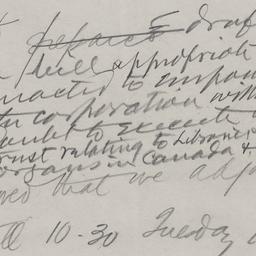 prepare draft
bill appropriate
enacted to empower
corporation with
to execute
trust relating to Libraries,
organs in Canada &
that we adj
10-30 Tuesday